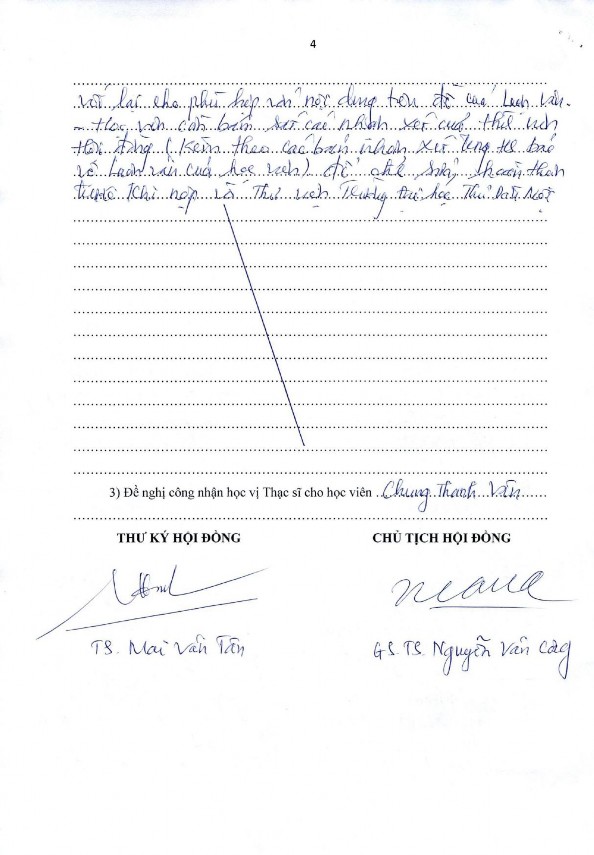 4
lại cho phù hợp với nội dung tên đề của Luận văn.
- Học viên cần bám các nhận xét của
Hội đồng (kèm theo các bản nhận xét
về Luận văn của học viên) để chỉnh hoàn thiện
trước khi nộp về Thư viện Trường Đại học Thủ Dầu Một
3) Đề nghị công nhận học vị Thạc sĩ cho học viên Chung Thanh Vân
THƯ KÝ HỘI ĐỒNG CHỦ TỊCH HỘI ĐỒNG
TS. Mai Văn Tân GS.TS. Nguyễn Văn